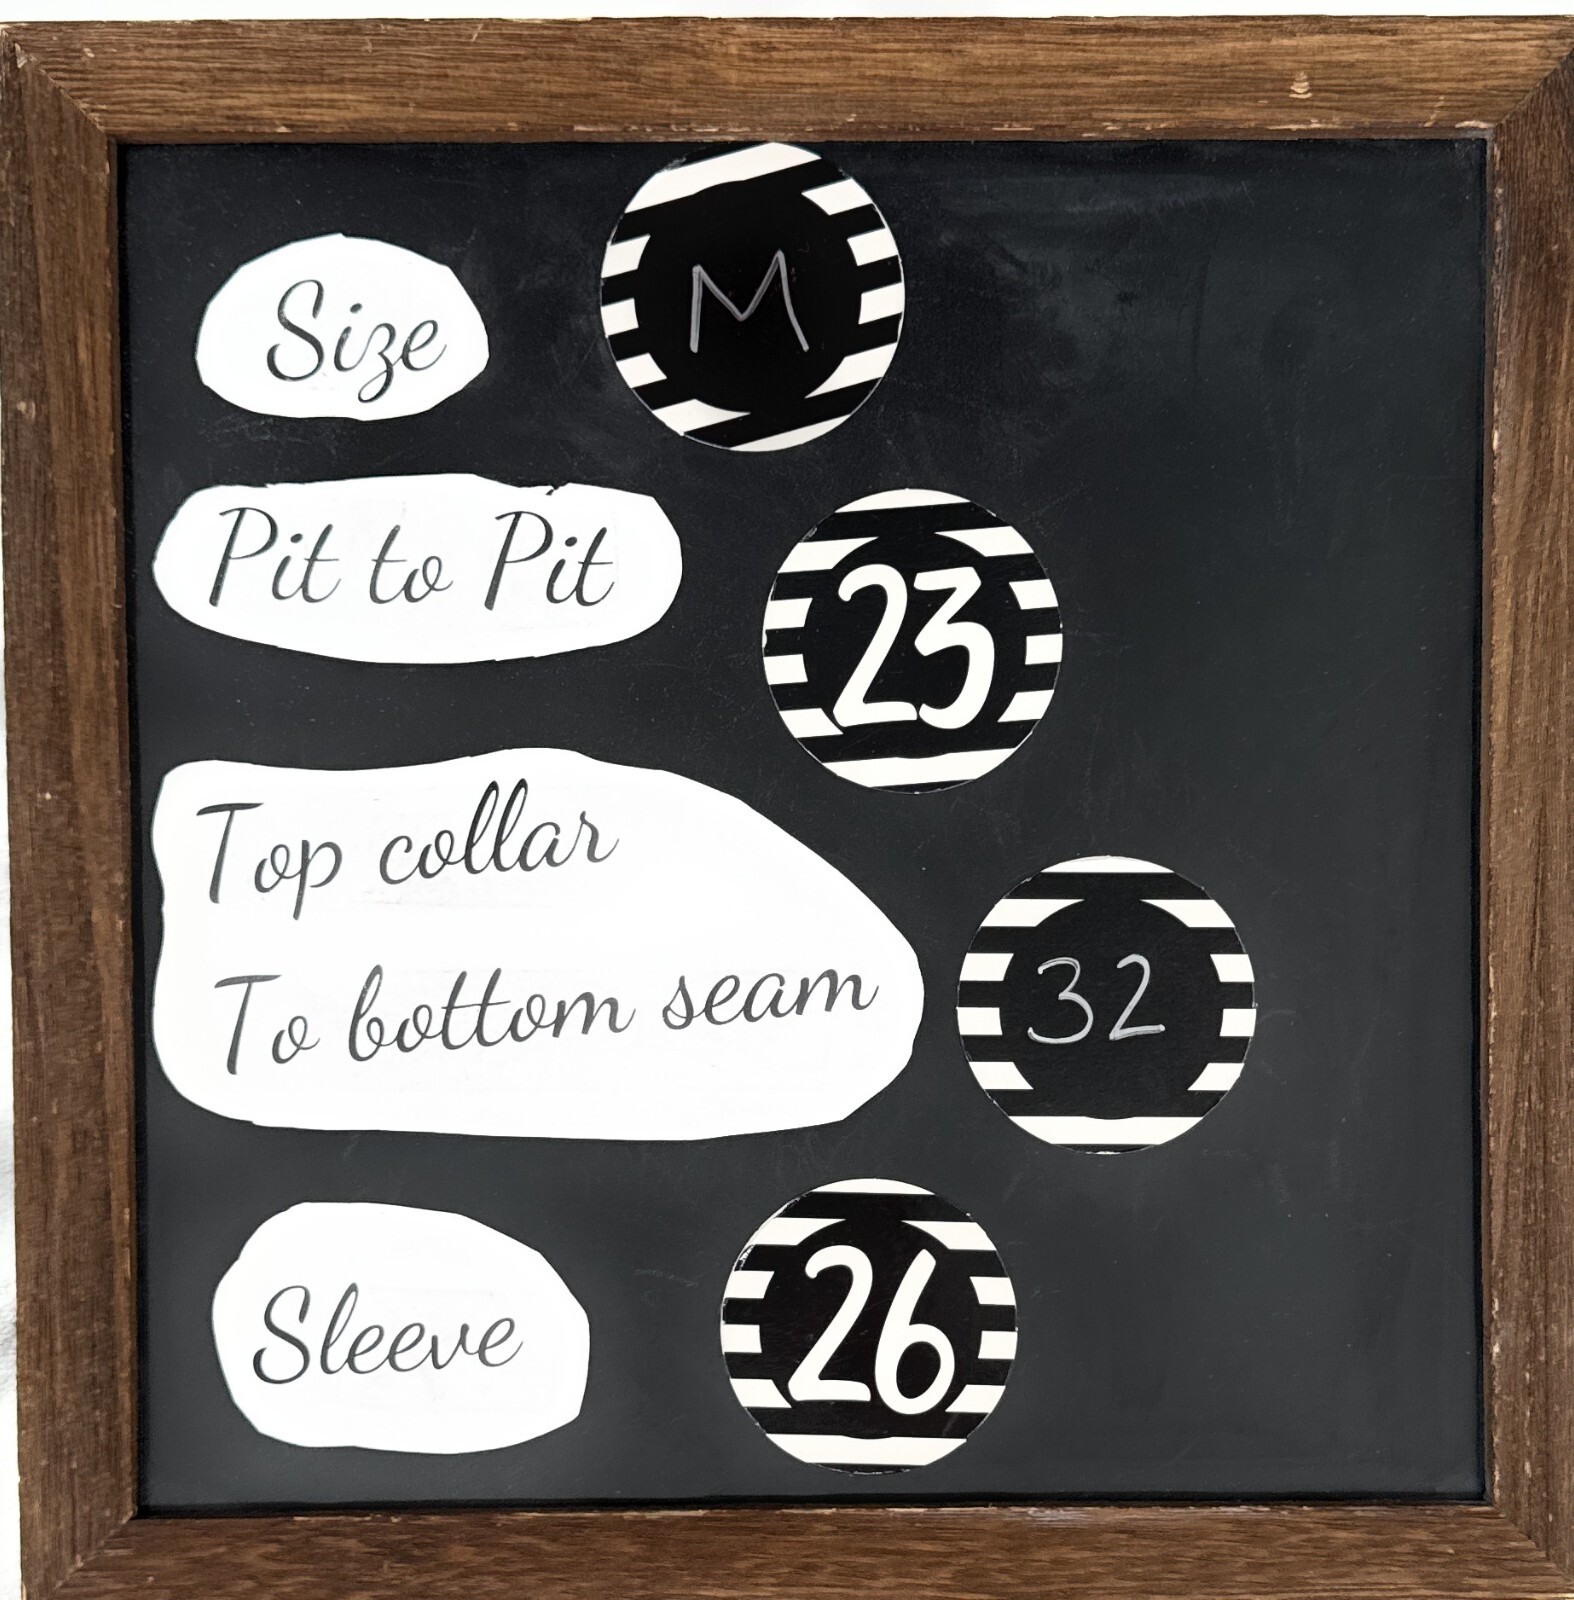 Size M
Pit to Pit 23
Top collar
To bottom seam 32
Sleeve 26